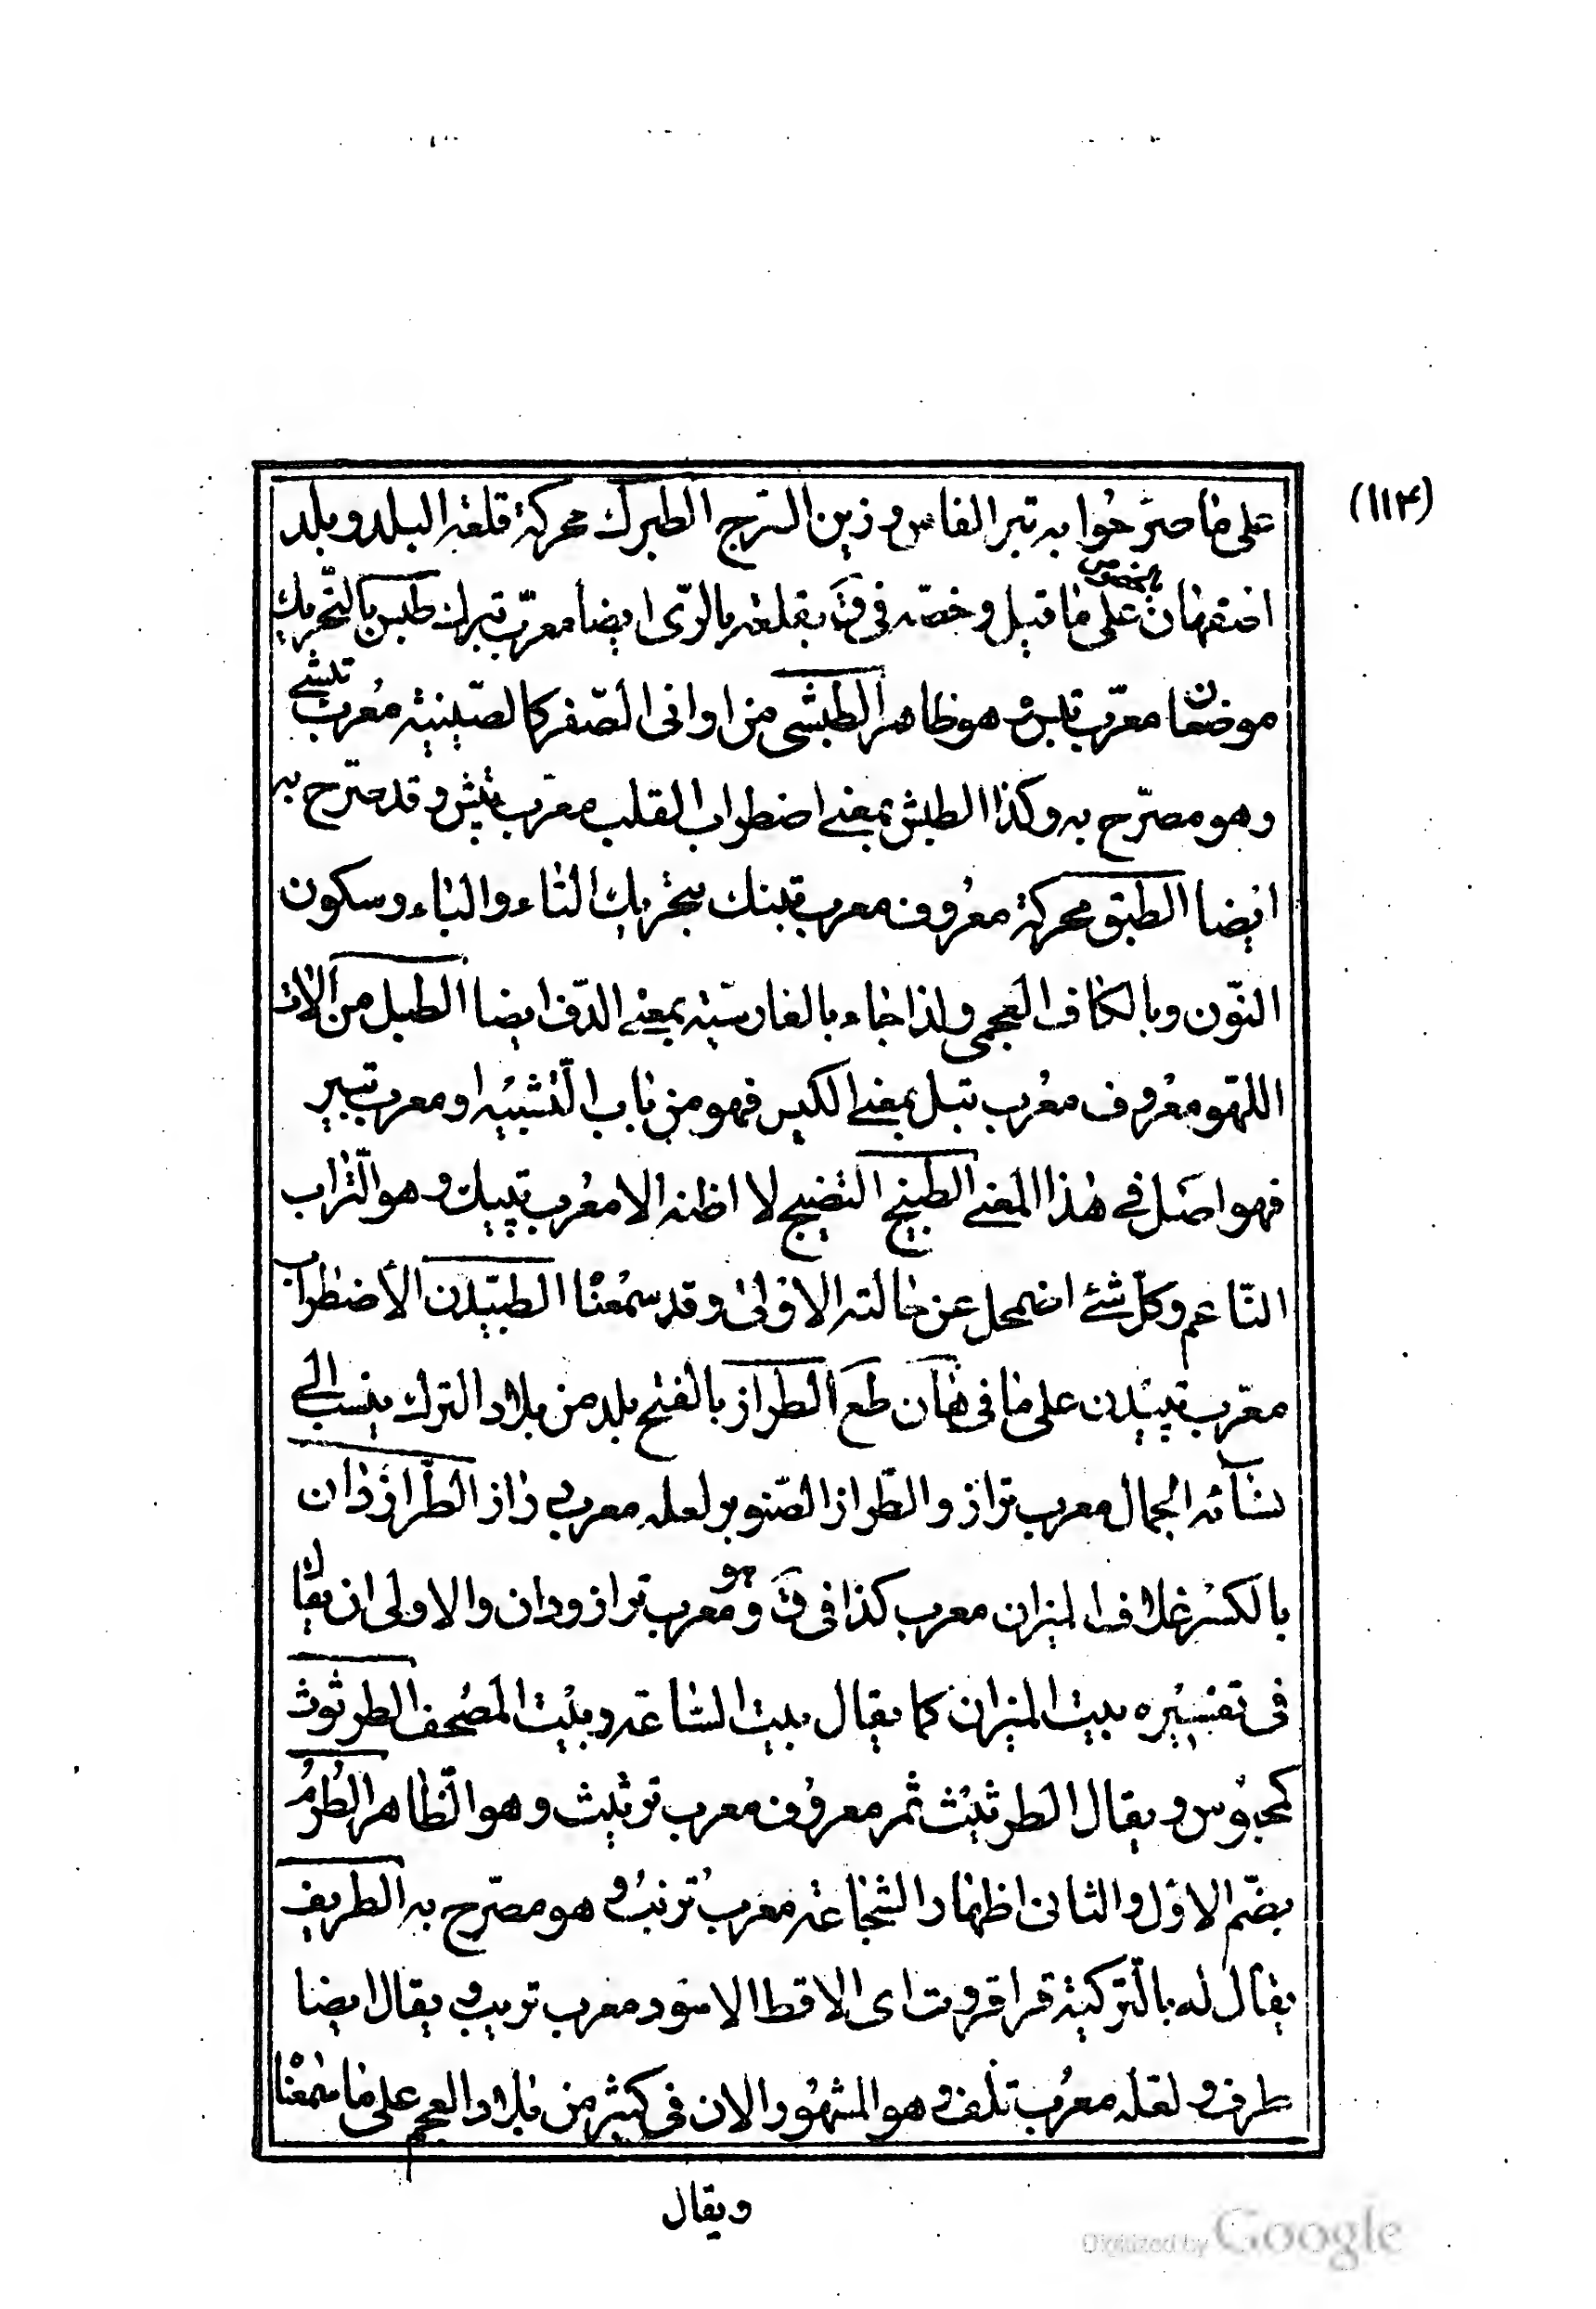 (١١۴)
على ما صرّحوا به تبر الفاس و زين السّرج الطبرك محركة قلعة البلد و بلد
اصفهان بخصوص على ما قيل و خصّه فى ق بقلعة بالرّى ايضا معرّب تبرك طبس بالتّحريك
موضعان معرّب تبس و هو ظاهر الطبشى من اوانى الصّفر كالصّينيّة معرب تبشى
و هو مصرّح به و كذا الطبش بمعنى اضطراب القلب معرّب تپش و قد صرّح به
ايضا الطبق محركة معروف معرب تبنك بتحريك التاء و الباء و سكون
النّون و بالكاف العجمى و لذا جاء بالفارسيّة بمعنى الدّف ايضا الطبل من الات
اللهو معروف معرب تبل بمعنى الكيس فهو من باب التّشبيه او معرب تبير
فهو اصل فى هذا المعنى الطبيخ النضيج لا اظنه الا معرب تپيك و هو التّراب
النّاعم و كلّ شئ اضمحل عن حالته الاولى و قد سمعنا الطبيدن الأضطراب
معرّب تپيدن على ما فى هآن طع الطراز بالفتح بلد من بلاد الترك ينسب الى
نسآئه الجمال معرب تراز و الطّراز الصّنوبر لعله معرب راز الطّرازدان
بالكسر غلاف الميزان معرب كذا فى ق و هو معرب ترازودان و الاولى ان يقال
فى تفسيره بيت الميزان كما يقال بيت السّاعة و بيت المصحف الطرثوث
كمحبوس و يقال الطرثيث ثمر معروف معرب ترثيث و هو الظّاهر الطرم
بضّم الاوّل و الثانى اظهار الشّجاعة معرب ترنب و هو مصرّح به الطريف
يقال له بالتركيّة قراقروت اى الاقط الاسود معرب تريب و يقال ايضا
طرف و لعله معرب تلف و هو المشهور الان فى كثير من بلاد العجم على ما سمعنا
و يقال
Digitized by Google